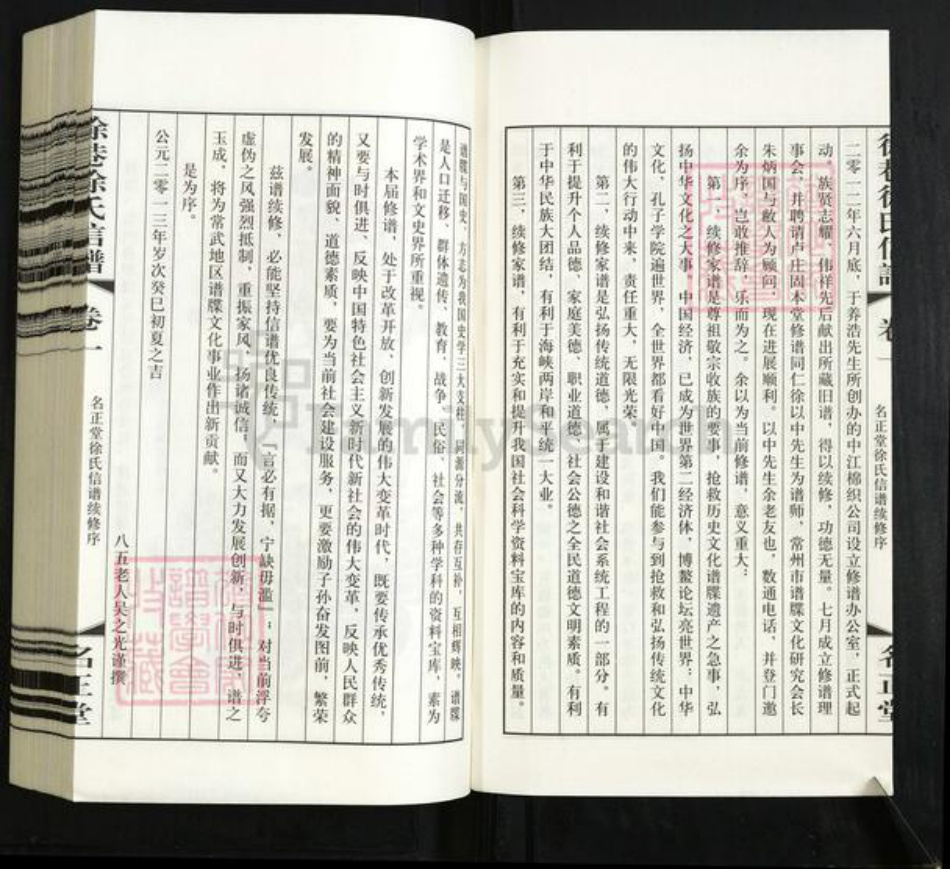 二零一二年六月底，于养浩先生所创办的中江棉织公司设立修谱办公室，正式起
动。族贤志耀、伟祥先后献出所藏旧谱，得以续修，功德无量。七月成立修谱理
事会，并聘请卢庄固本堂修谱同仁徐以中先生为谱师，常州市谱牒文化研究会长
朱炳国与敝人为顾问，现在进展顺利。以中先生余老友也，数通电话，并登门邀
余为序，岂敢推辞，乐而为之。余以为当前修谱，意义重大：
第一，续修家谱是尊祖敬宗收族的要事，抢救历史文化谱牒遗产之急事，弘
扬中华文化之大事，中国经济，已成为世界第二经济体，博鳌论坛亮世界；中华
文化，孔子学院遍世界，全世界都看好中国。我们能参与到抢救和弘扬传统文化
的伟大行动中来，责任重大，无限光荣。
第二，续修家谱是弘扬传统道德，属于建设和谐社会系统工程的一部分。有
利于提升个人品德、家庭美德、职业道德、社会公德之全民道德文明素质。有利
于中华民族大团结，有利于海峡两岸和平统一大业。
第三，续修家谱，有利于充实和提升我国社会科学资料宝库的内容和质量。
卷一
名正堂徐氏信谱续修序
名正堂
谱牒与国史、方志为我国史学三大支柱，同源分流，共存互补，互相辉映，谱牒
是人口迁移、群体遗传、教育、战争、民俗、社会等多种学科的资料宝库，素为
学术界和文史界所重视。
本届修谱，处于改革开放、创新发展的伟大变革时代，既要传承优秀传统，
又要与时俱进、反映中国特色社会主义新时代新社会的伟大变革，反映人民群众
的精神面貌、道德素质，要为当前社会建设服务，更要激励子孙奋发图前，繁荣
发展。
兹谱续修，必能坚持信谱优良传统，「言必有据，宁缺毋滥」；对当前浮夸
虚伪之风强烈抵制，重振家风，扬诸诚信，而又大力发展创新，与时俱进，谱之
玉成，将为常武地区谱牒文化事业作出新贡献。
是为序。
公元二零一三年岁次癸巳初夏之吉
八五老人吴之光谨撰
徐巷徐氏信谱
卷一
名正堂徐氏信谱续修序
名正堂